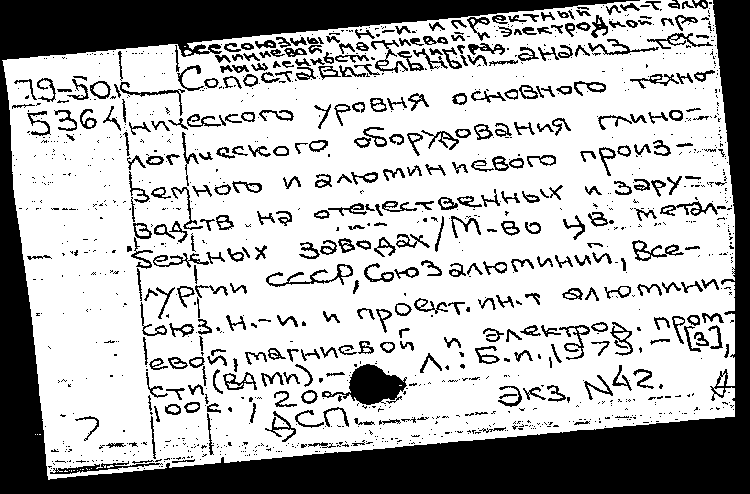 Всесоюзный н.-и. и проектный ин-т алю
миниевой, магниевой и электродной про-
мышленности. Ленинград.
79-50к Сопоставительный анализ тех-
5364 нического уровня основного техно-
логического оборудования глино-
земного и алюминиевого произ-
водств на отечественных и зару-
бежных заводах/М-во цв. метал-
лургии СССР, Союзалюминий, Все-
союз. н.-и. и проект. ин.т алюмини-
евой, магниевой и электрод. пром-
сти (ВАМИ). – Л.: Б.и., 1979. – [3],
100 с. ; 20 см
Экз. N42.
ДСП.